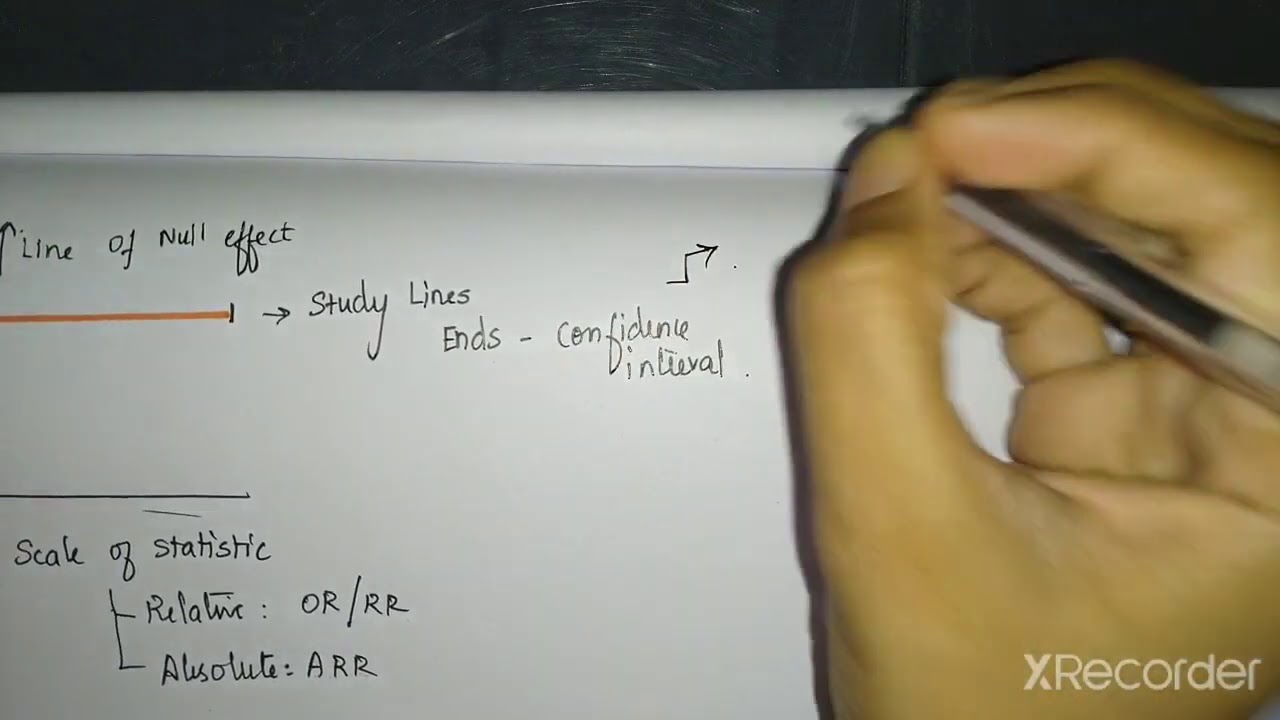 Line Of Null effect
→ Study Lines
Ends - Confidence
interval.
Scale of statistic
Relative: OR/RR
Absolute: ARR
XRecorder